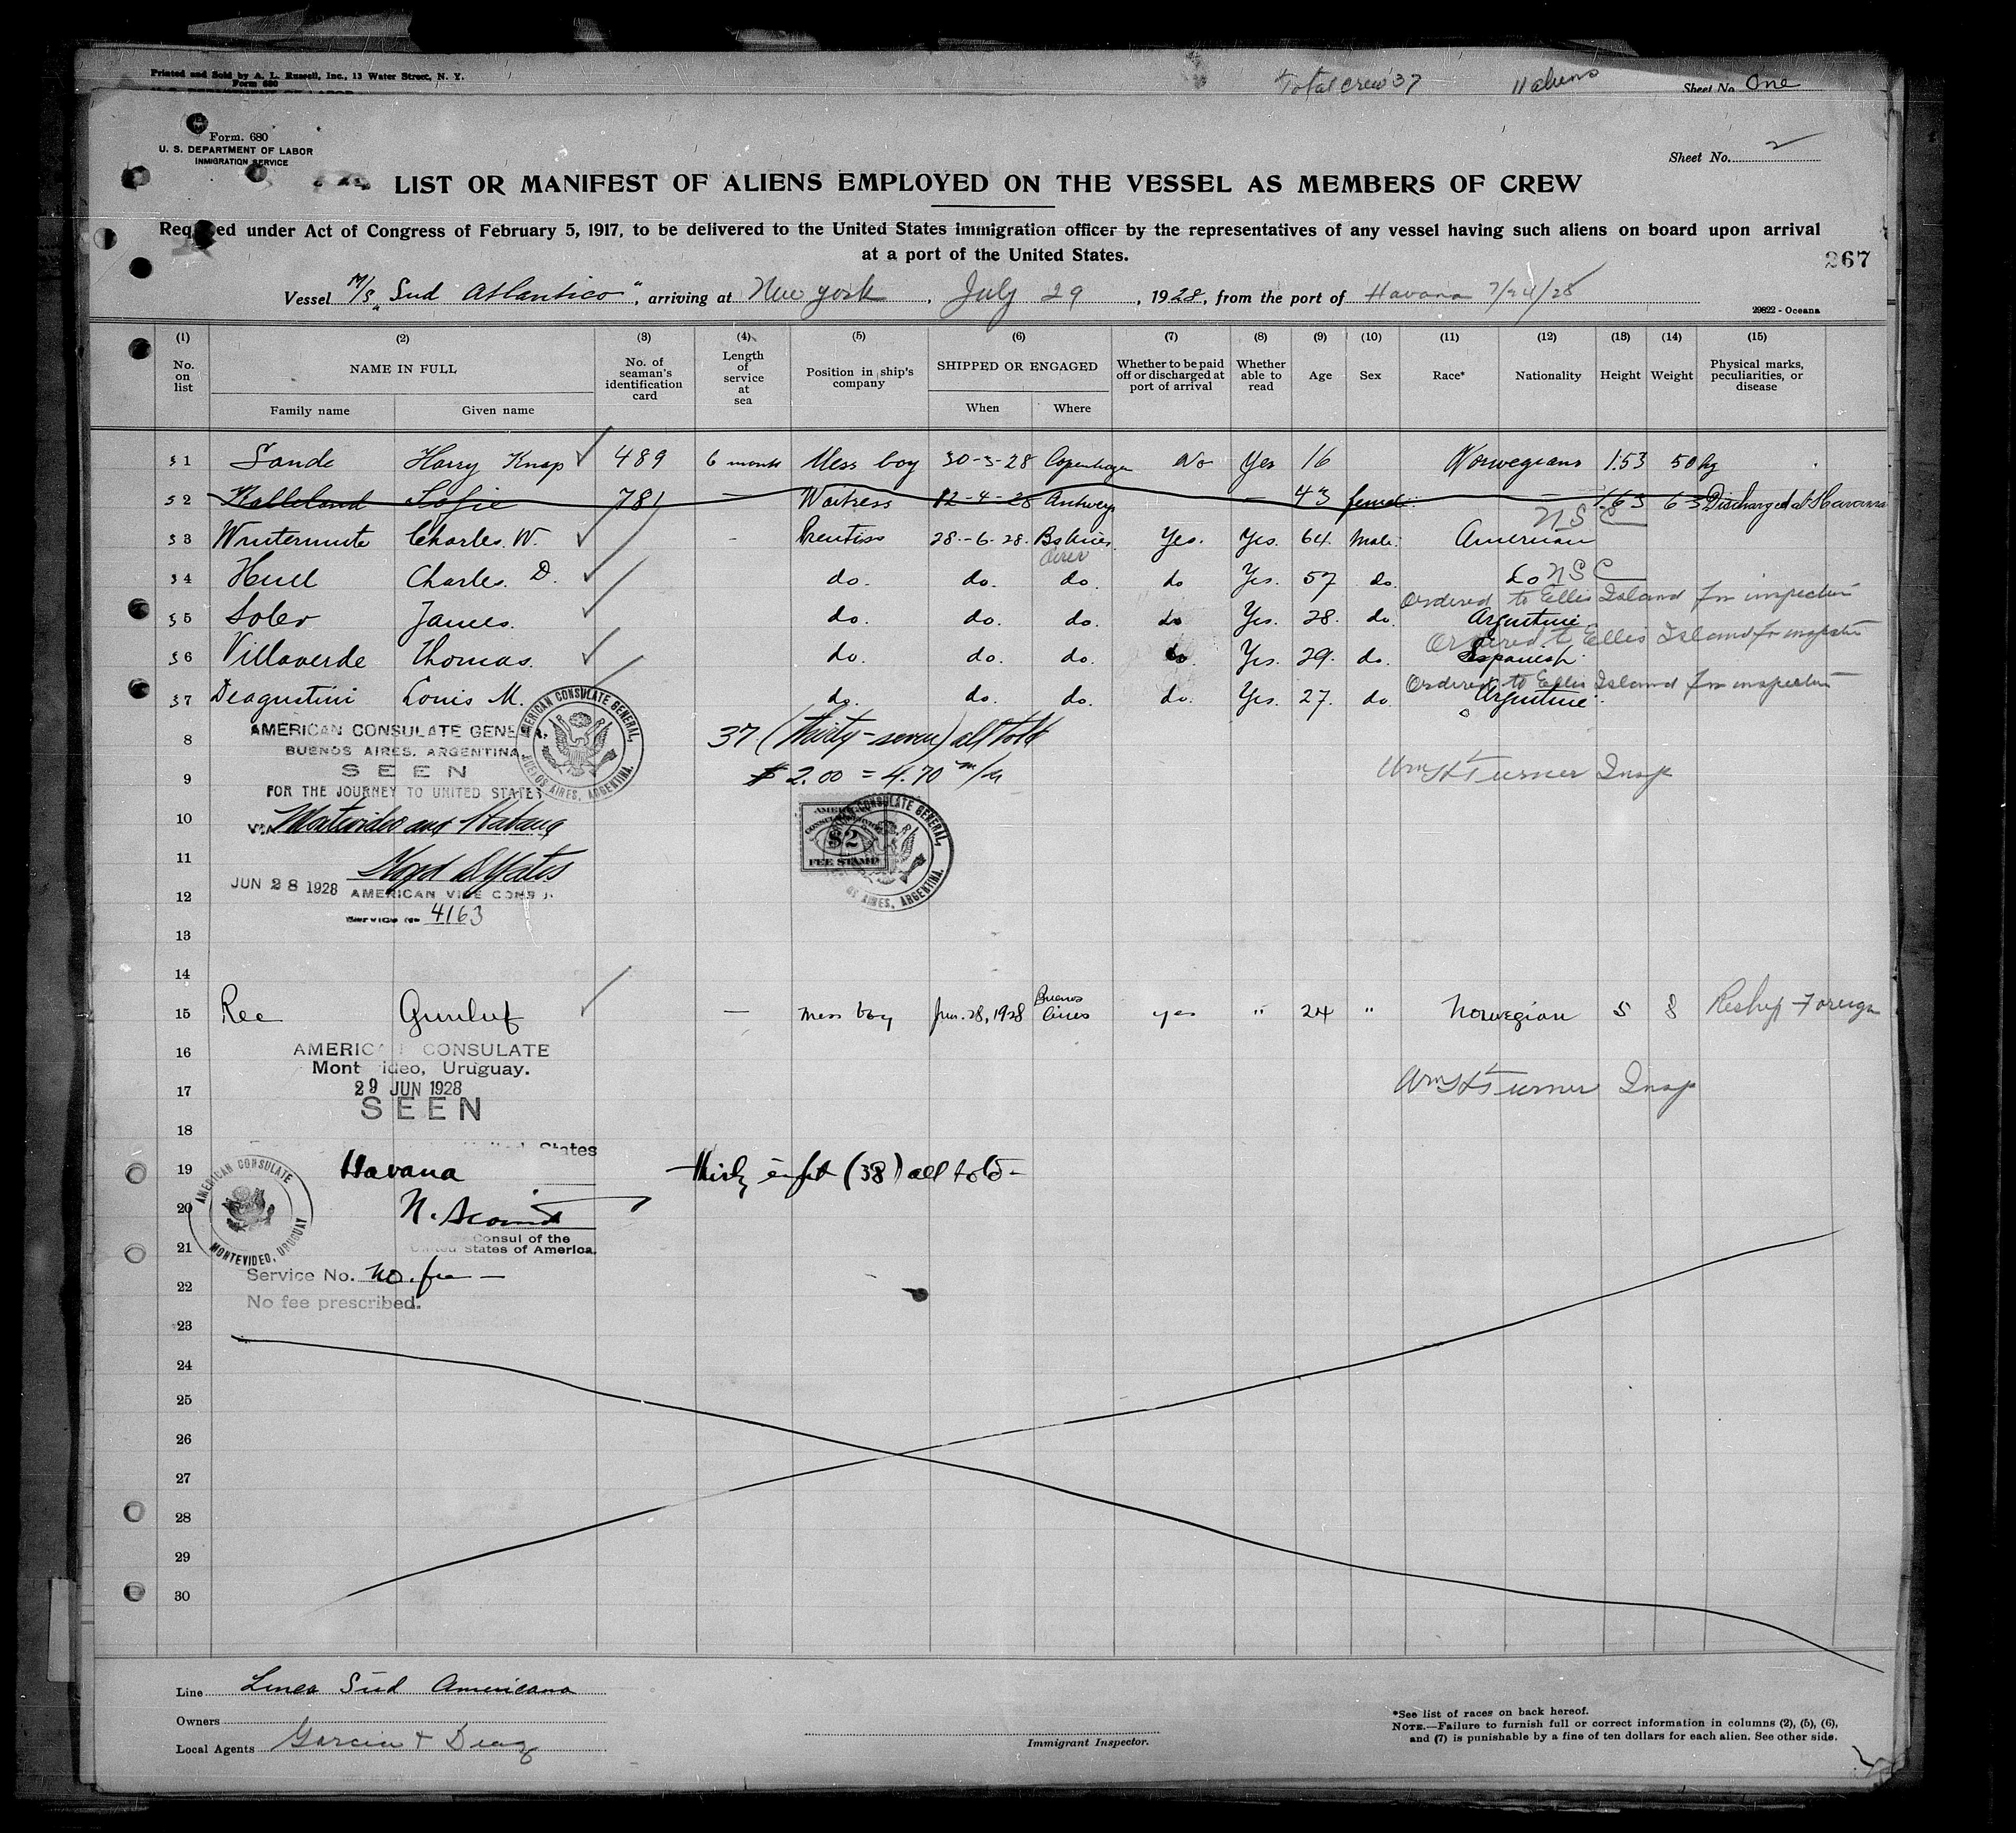 Printed and Sold by A. L. Russell, Inc., 13 Water Street, N. Y.
Form 680
Total crew 37
11 aliens
Sheet No. One
Form. 680
U. S. DEPARTMENT OF LABOR
INMIGRATION SERVICE
Sheet No. 2
LIST OR MANIFEST OF ALIENS EMPLOYED ON THE VESSEL AS MEMBERS OF CREW
Required under Act of Congress of February 5, 1917, to be delivered to the United States immigration officer by the representatives of any vessel having such aliens on board upon arrival
at a port of the United States.
267
Vessel M/S "Sud Atlantico", arriving at New York, July 29, 1928, from the port of Havana 7/24/28
29822 - Oceana
(1) (2) (3) (4) (5) (6) (7) (8) (9) (10) (11) (12) (13) (14) (15)
No. on list NAME IN FULL No. of seaman's identification card Length of service at sea Position in ship's company SHIPPED OR ENGAGED Whether to be paid off or discharged at port of arrival Whether able to read Age Sex Race* Nationality Height Weight Physical marks, peculiarities, or disease
Family name Given name When Where
31 Sande Harry Knap 489 6 month Mess boy 30-3-28 Copenhagen No Yes 16 Norwegians 1.53 50 kg
32 Kalleland Sofie 781 — Waitress 12-4-28 Antwerp — 43 female — 1.63 63 Discharged at Havanna
NSC
33 Wintermute Charles W. - Prentiss 28-6-28. Bs Aires Yes. Yes. 64. Male. American
34 Huel Charles D. do. do. do. do Yes. 57 do. do NSC
Ordered to Ellis Island for inspection
35 Soler James. do. do. do. do Yes. 28. do. Argentine
Ordered to Ellis Island for inspection
36 Villaverde Thomas. do. do. do. do. Yes. 29. do. Spanish
Ordered to Ellis Island for inspection
37 Deagustini Louis M. do. do. do. do. Yes. 27. do Argentine
AMERICAN CONSULATE GENERAL,
BUENOS AIRES, ARGENTINA
8 37 (thirty-seven) all told
SEEN
9 $2.00 = 4.70 m/n
Wm H Turner Insp
FOR THE JOURNEY TO UNITED STATES
AMERICAN CONSULATE GENERAL, BUENOS AIRES, ARGENTINA.
10 VIA Montevideo and Habana
AMERICAN CONSULAR SERVICE $2 FEE STAMP
11
JUN 28 1928
12 AMERICAN VICE CONSUL
Service No 4163
13
14
15 Ree Gunluf — mess boy Jun. 28, 1928 Buenos Aires yes " 24 " Norwegian 5 8 Reship Foreign
16 AMERICAN CONSULATE
Montevideo, Uruguay.
17 29 JUN 1928
Wm H Turner Insp
SEEN
18
United States
19 Havana thirty eight (38) all told -
AMERICAN CONSULATE MONTEVIDEO, URUGUAY
20
Consul of the
21 United States of America.
Service No. no fee —
22
No fee prescribed.
23
24
25
26
27
28
29
30
Line Linea Sud Americana
Owners
Local Agents Garcia & Diaz
Immigrant Inspector.
*See list of races on back hereof.
NOTE.—Failure to furnish full or correct information in columns (2), (5), (6),
and (7) is punishable by a fine of ten dollars for each alien. See other side.